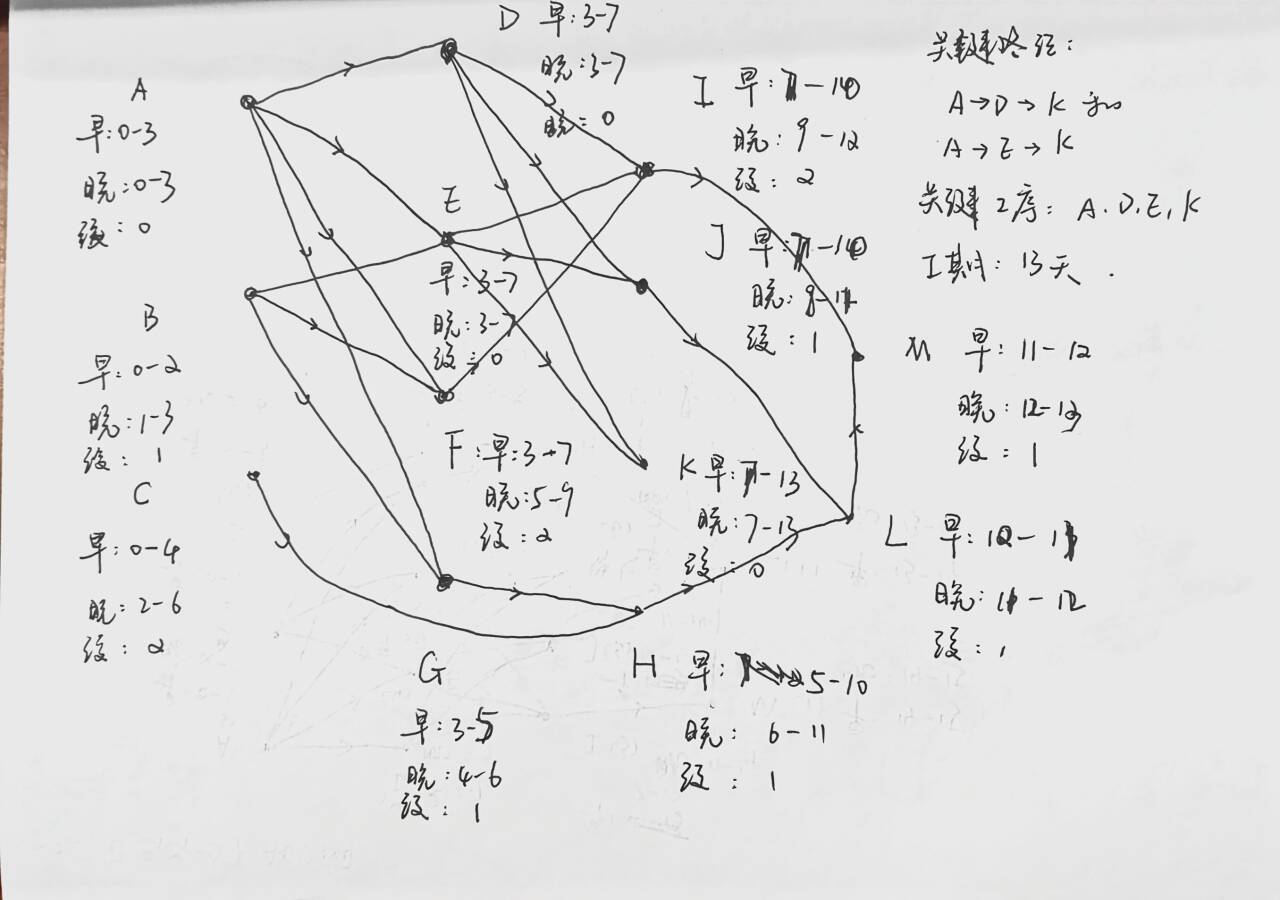 A
早:0-3
晚:0-3
缓:0
B
早:0-2
晚:1-3
缓:1
C
早:0-4
晚:2-6
缓:2
D 早:3-7
晚:3-7
缓:0
E
早:3-7
晚:3-7
缓:0
F:早:3-7
晚:5-9
缓:2
G
早:3-5
晚:4-6
缓:1
H 早:5-10
晚:6-11
缓:1
I 早:7-10
晚:9-12
缓:2
J 早:7-10
晚:8-11
缓:1
K 早:7-13
晚:7-13
缓:0
关键路径:
A→D→K 和
A→E→K
关键工序:A.D.E.K
工期:13天.
M 早:11-12
晚:12-13
缓:1
L 早:10-11
晚:11-12
缓:1